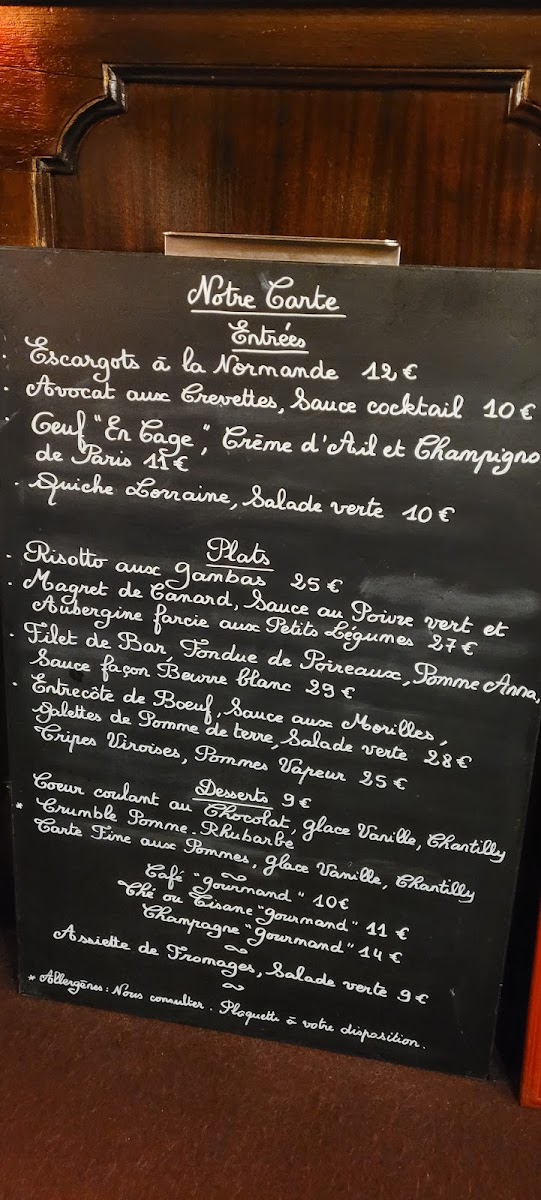 Notre Carte
Entrées
· Escargots à la Normande 12 €
· Avocat aux Crevettes, Sauce cocktail 10 €
· Oeuf "En Cage", Crème d'Ail et Champigno
de Paris 11 €
· Quiche Lorraine, Salade verte 10 €
Plats
· Risotto aux gambas 25 €
· Magret de Canard, Sauce au Poivre vert et
Aubergine farcie aux Petits Légumes 27 €
· Filet de Bar, Fondue de Poireaux, Pomme Anna,
Sauce façon Beurre blanc 29 €
· Entrecôte de Boeuf, Sauce aux Morilles,
Galettes de Pomme de terre, Salade verte 28 €
Tripes Viroises, Pommes Vapeur 25 €
Desserts 9 €
Coeur coulant au Chocolat, glace Vanille, Chantilly
* Crumble Pomme-Rhubarbe
Tarte Fine aux Pommes, glace Vanille, Chantilly
~
Café "gourmand" 10€
Thé ou Tisane "gourmand" 11 €
Champagne "gourmand" 14 €
~
Assiette de Fromages, Salade verte 9 €
~
* Allergènes : Nous consulter. Plaquette à votre disposition.